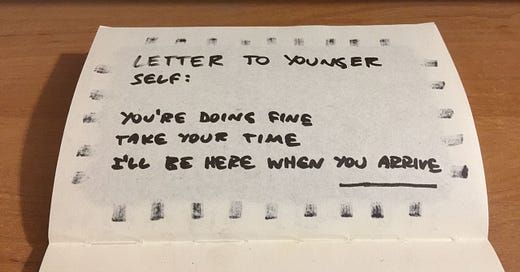 LETTER TO YOUNGER
SELF:
YOU'RE DOING FINE
TAKE YOUR TIME
I'LL BE HERE WHEN YOU ARRIVE